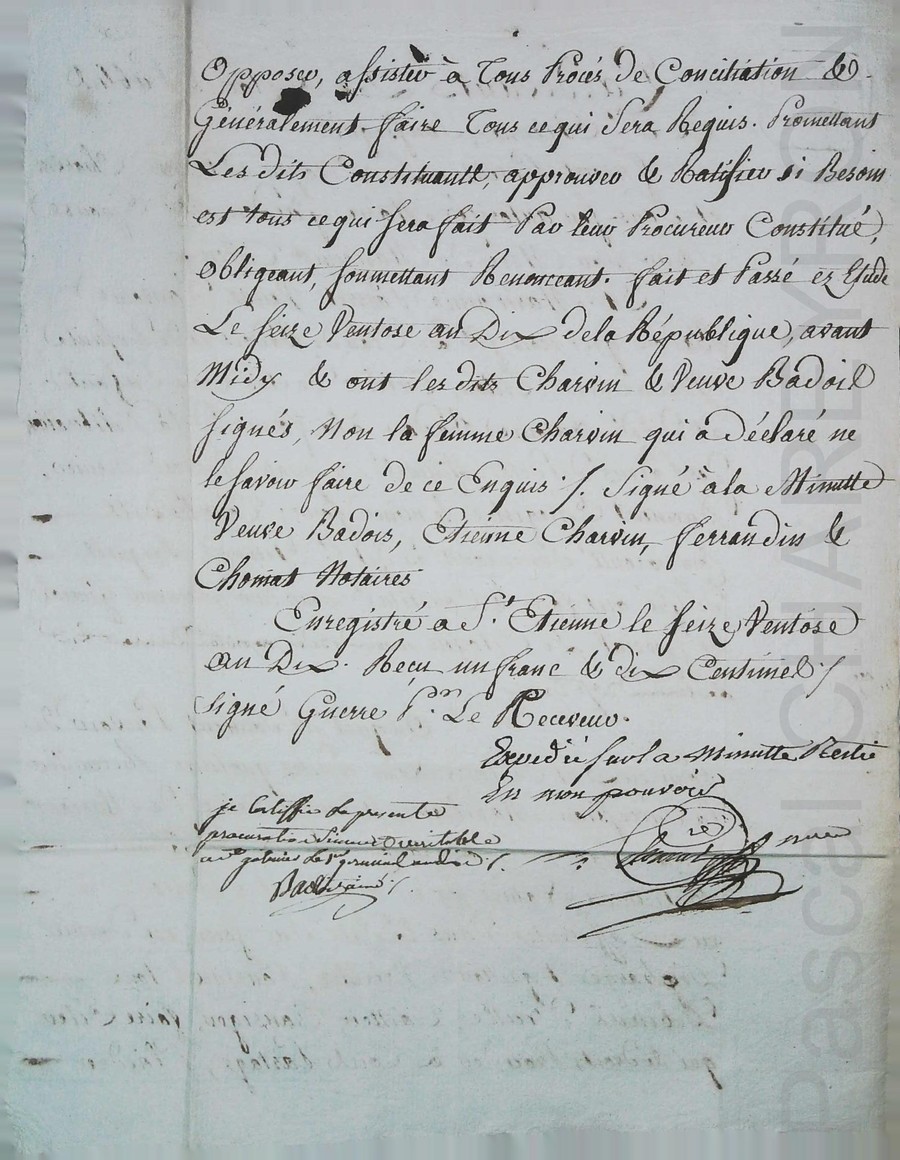 Opposer, assister à Tous Procès de Conciliation &
Généralement faire Tous ce qui Sera Requis. Promettant
Les dits Constituants, approuver & Ratifier si Besoin
est tous ce qui sera fait Par leur Procureur Constitué,
Obligeant, soumettant Renonceant. fait et Passé ez Etude
Le seize Ventose an Dix de la République, avant
Midy & ont les dits Charvin & Veuve Badoil
signés, Non la femme Charvin qui a déclaré ne
le savoir faire de ce Enquis ·/. Signé à la Minutte
Veuve Badois, Etienne Charvin, ferrandin &
Chomat Notaires
Enregistré a St. Etienne le seize Ventose
an Dix. Recu un franc & dix Centimes ·/
signé Guerre Pn. Le Receveur.
Expediée sur la Minutte Restée
En mon pouvoir
je Certiffie la presente
procuration Sincere & veritable
Chomat nre
Pascal CHAREYRON